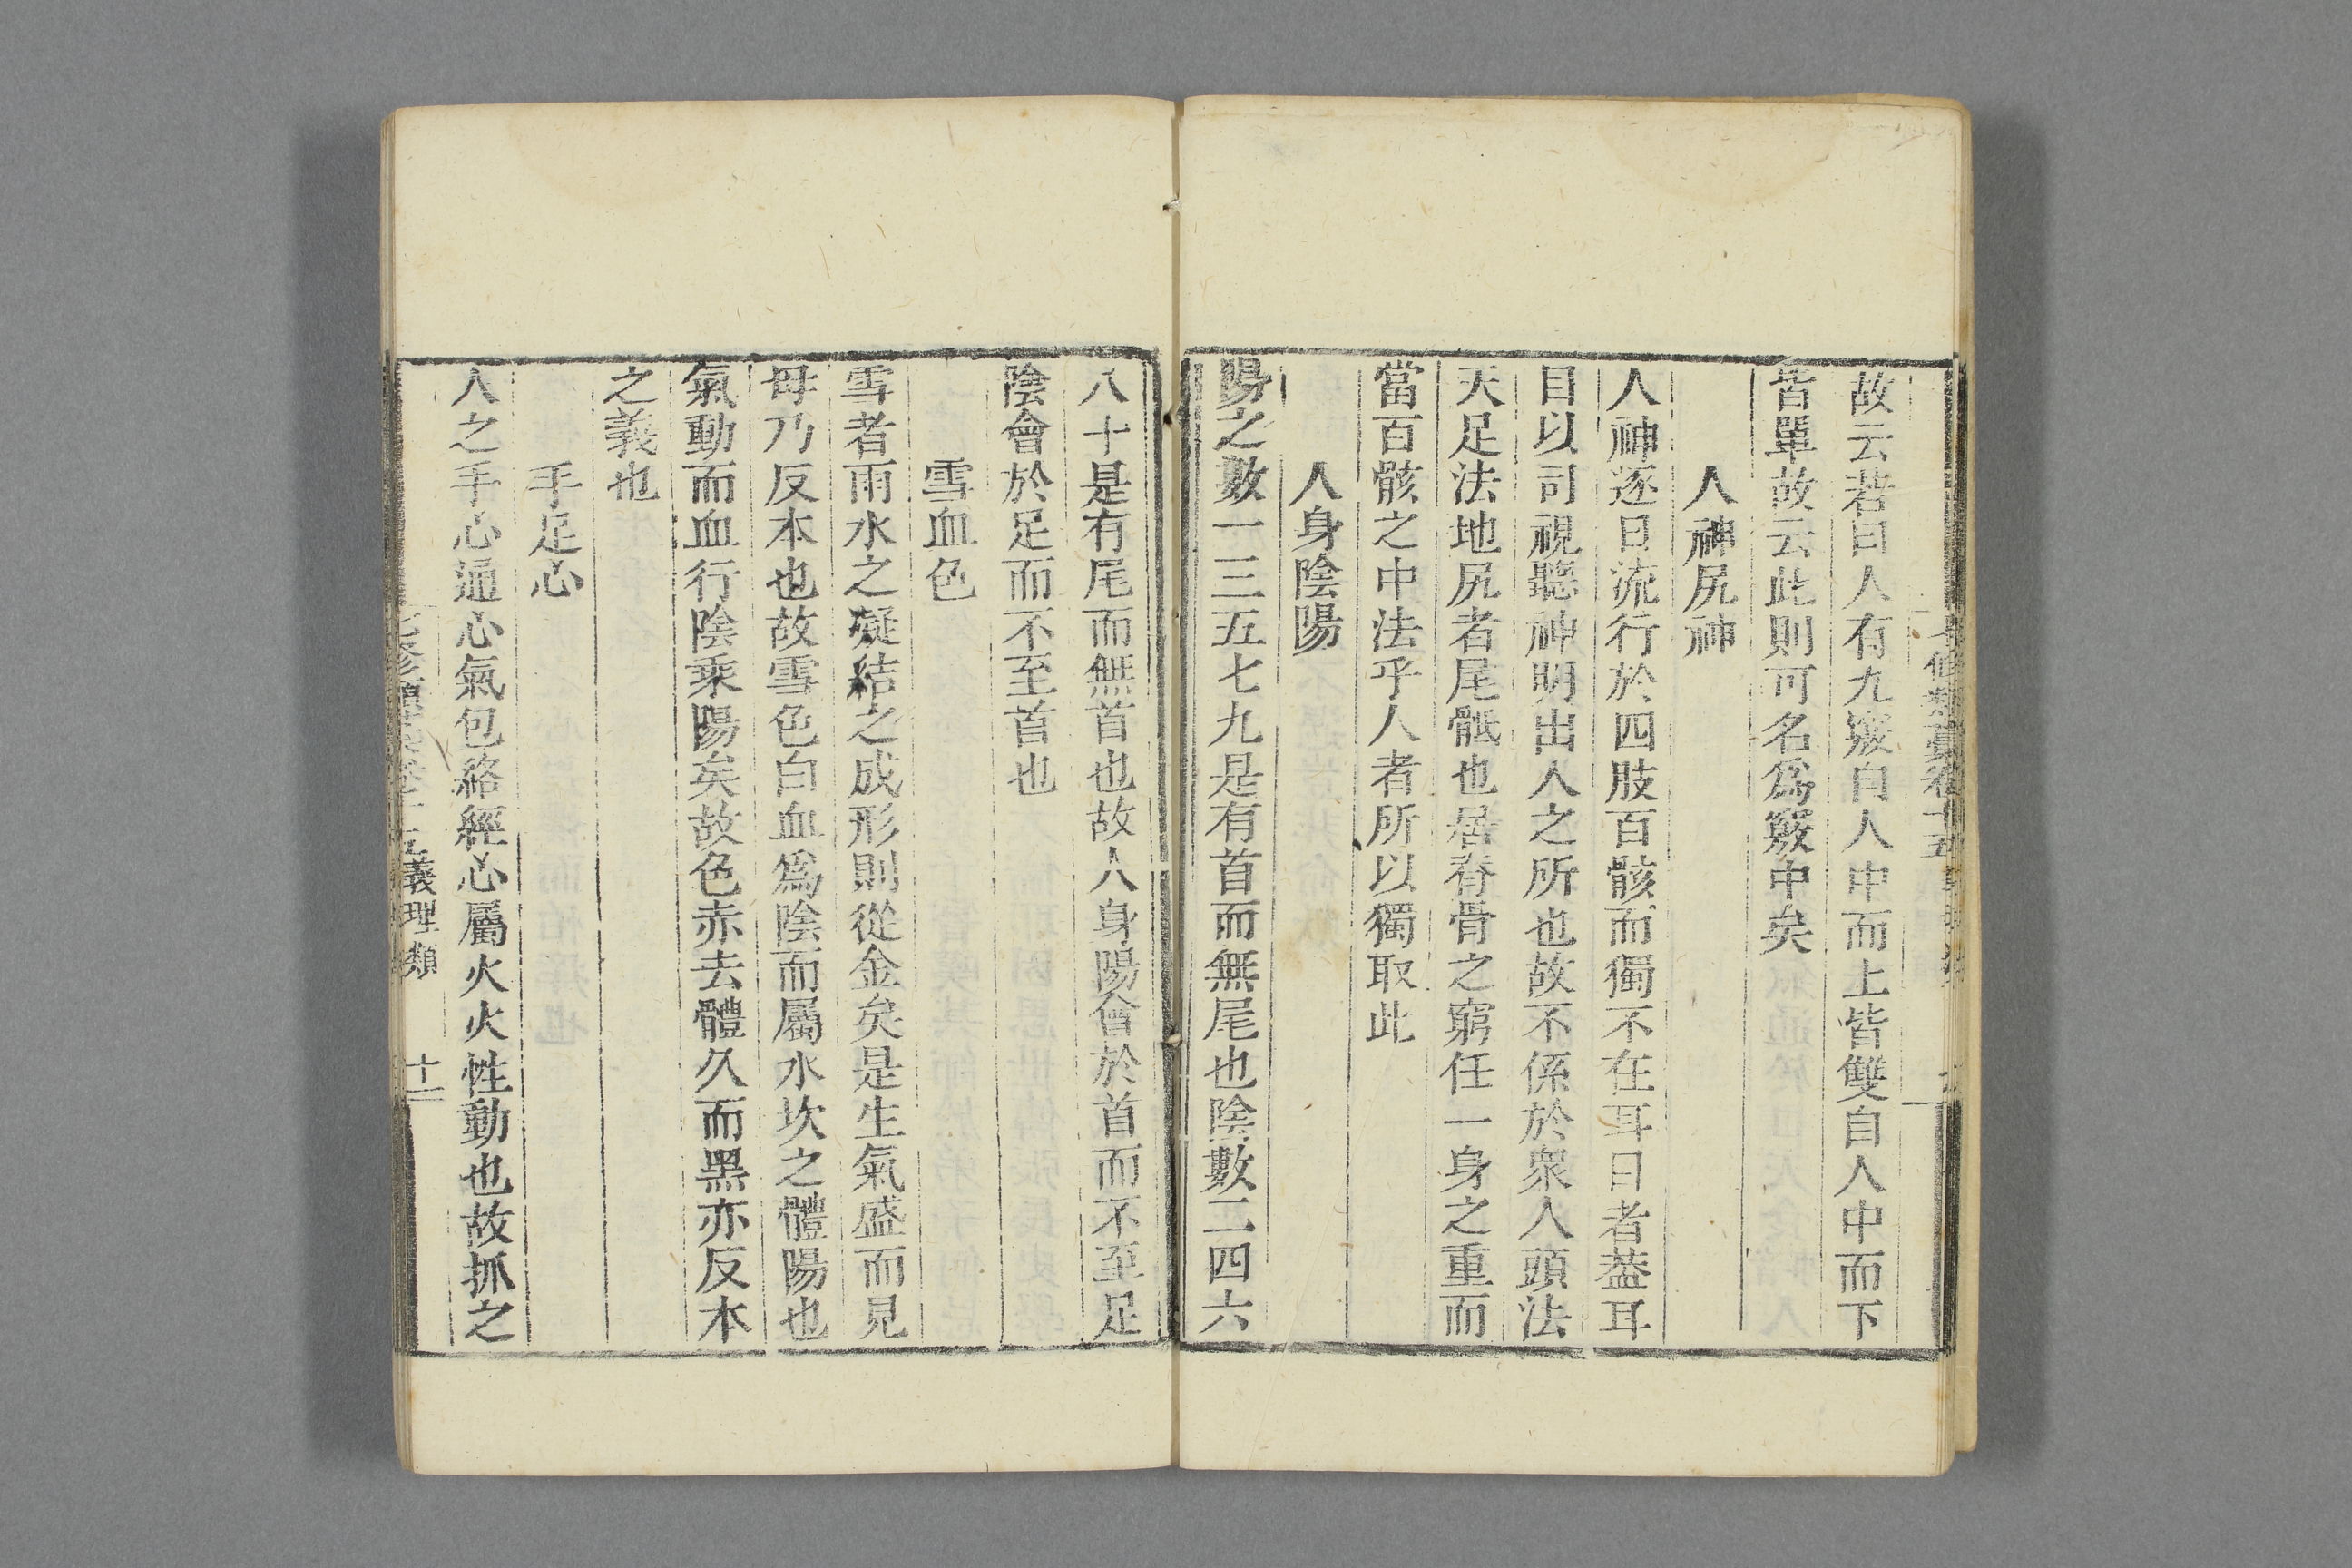 故云若曰人有九竅自人中而上皆雙自人中而下
皆單故云此則可名爲竅中矣
人神尻神
人神逐日流行於四肢百骸而獨不在耳目者葢耳
目以司視聽神明出入之所也故不係於衆人頭法
天足法地尻者尾骶也居脊骨之窮任一身之重而
當百骸之中法乎人者所以獨取此
人身陰陽
陽之數一三五七九是有首而無尾也陰數二四六
八十是有尾而無首也故人身陽會於首而不至足
陰會於足而不至首也
雪血色
雪者雨水之凝結之成形則從金矣是生氣盛而見
母乃反本也故雪色白血爲陰而屬水坎之體陽也
氣動而血行陰乘陽矣故色赤去體久而黑亦反本
之義也
手足心
人之手心通心氣包絡經心屬火火性動也故抓之
七修類稾卷十五 義理類 十二